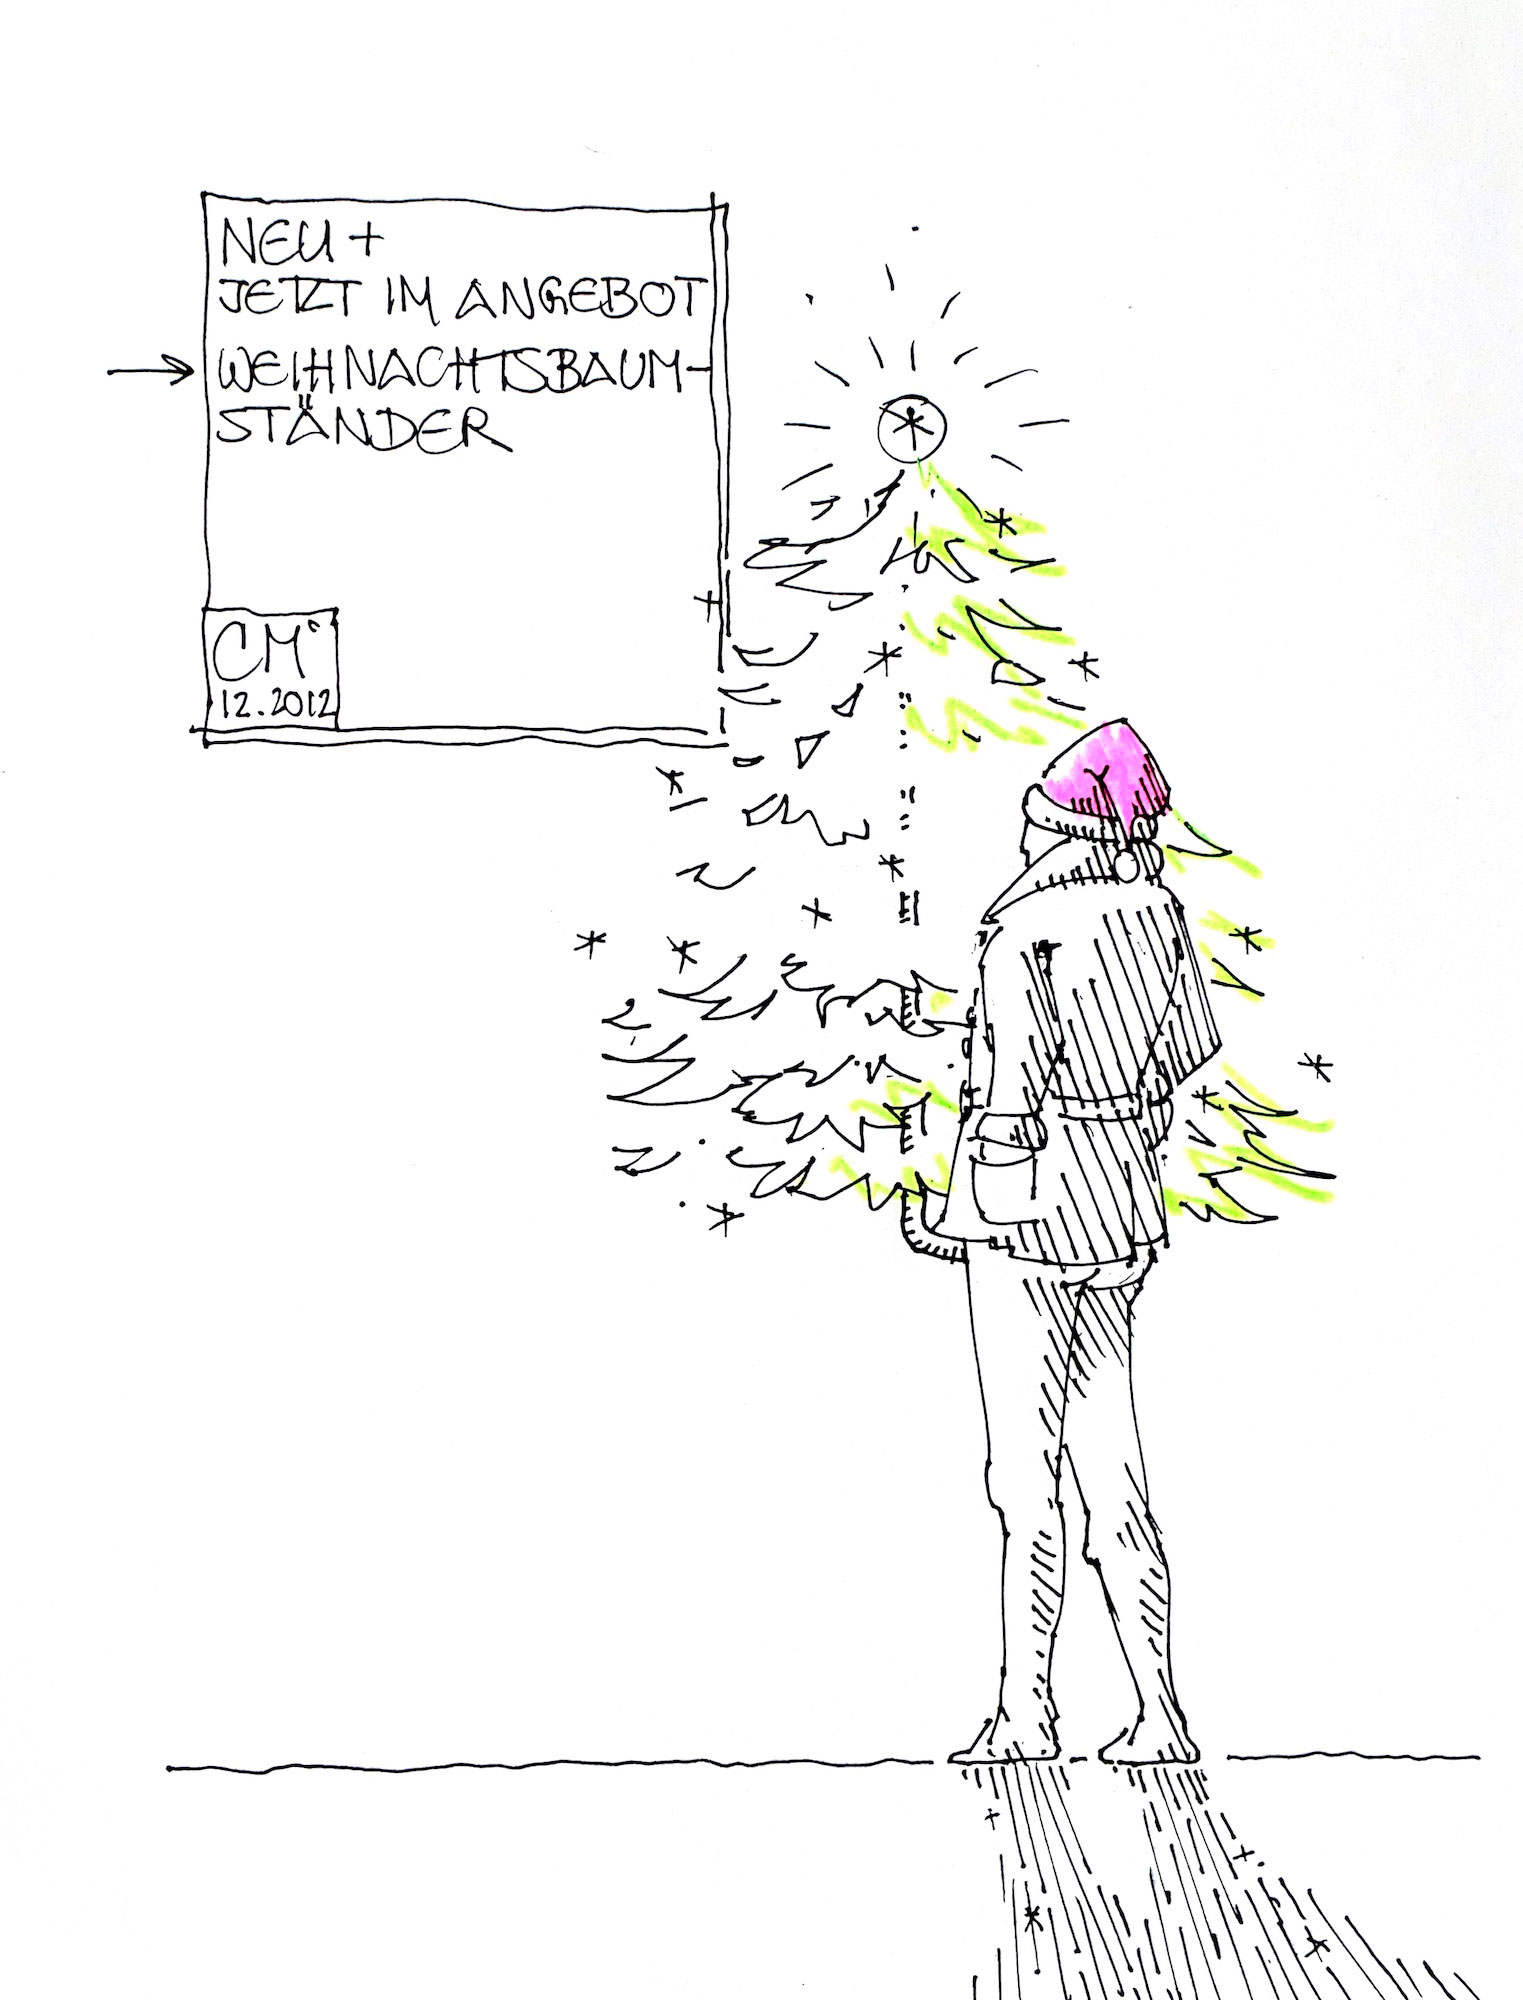 NEU +
JETZT IM ANGEBOT
WEIHNACHTSBAUM-
STÄNDER
CM°
12.2012